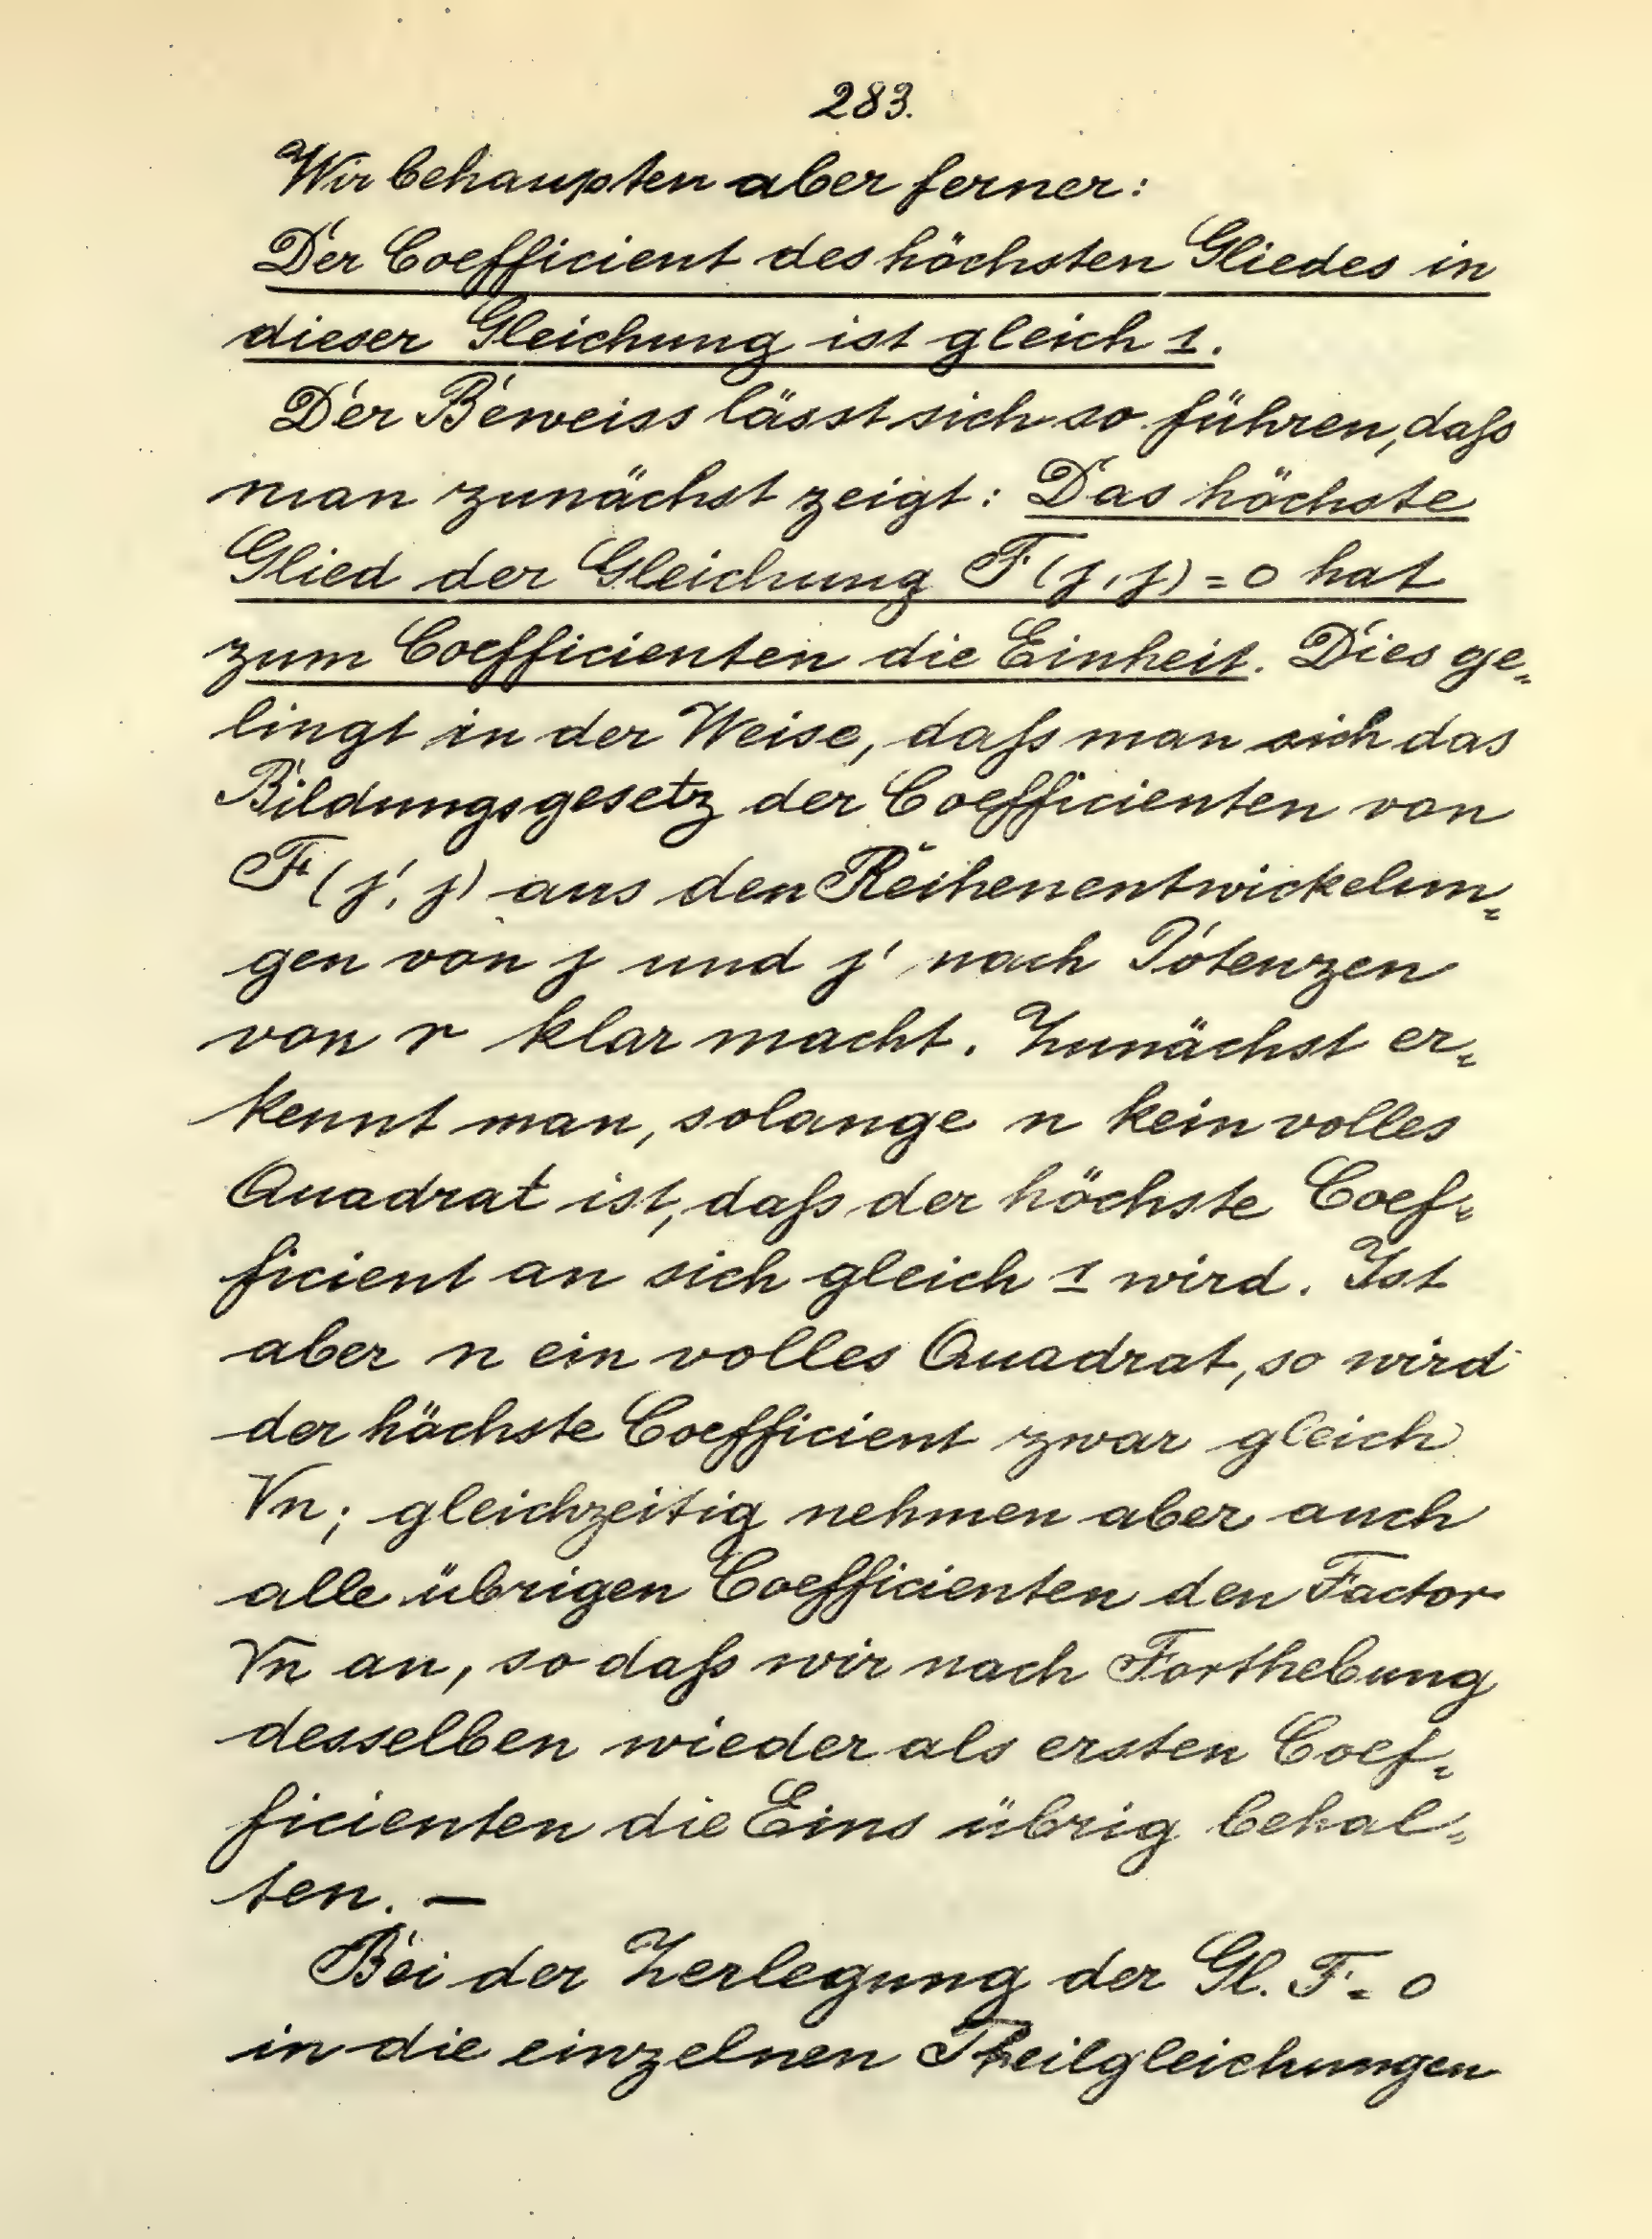 283.
Wir behaupten aber ferner:
Der Coefficient des höchsten Gliedes in
dieser Gleichung ist gleich 1.
Der Beweiss lässt sich so führen, daſs
man zunächst zeigt: Das höchste
Glied der Gleichung F(j, j) = 0 hat
zum Coefficienten die Einheit. Dies ge-
lingt in der Weise, daſs man sich das
Bildungsgesetz der Coefficienten von
F(j', j) aus den Reihenentwickelun-
gen von j und j' nach Potenzen
von r klar macht. Zunächst er-
kennt man, solange n kein volles
Quadrat ist, daſs der höchste Coef-
ficient an sich gleich 1 wird. Ist
aber n ein volles Quadrat, so wird
der höchste Coefficient zwar gleich
√n; gleichzeitig nehmen aber auch
alle übrigen Coefficienten den Factor
√n an, so daſs wir nach Forthebung
desselben wieder als ersten Coef-
ficienten die Eins übrig behal-
ten. —
Bei der Zerlegung der Gl. F = 0
in die einzelnen Theilgleichungen